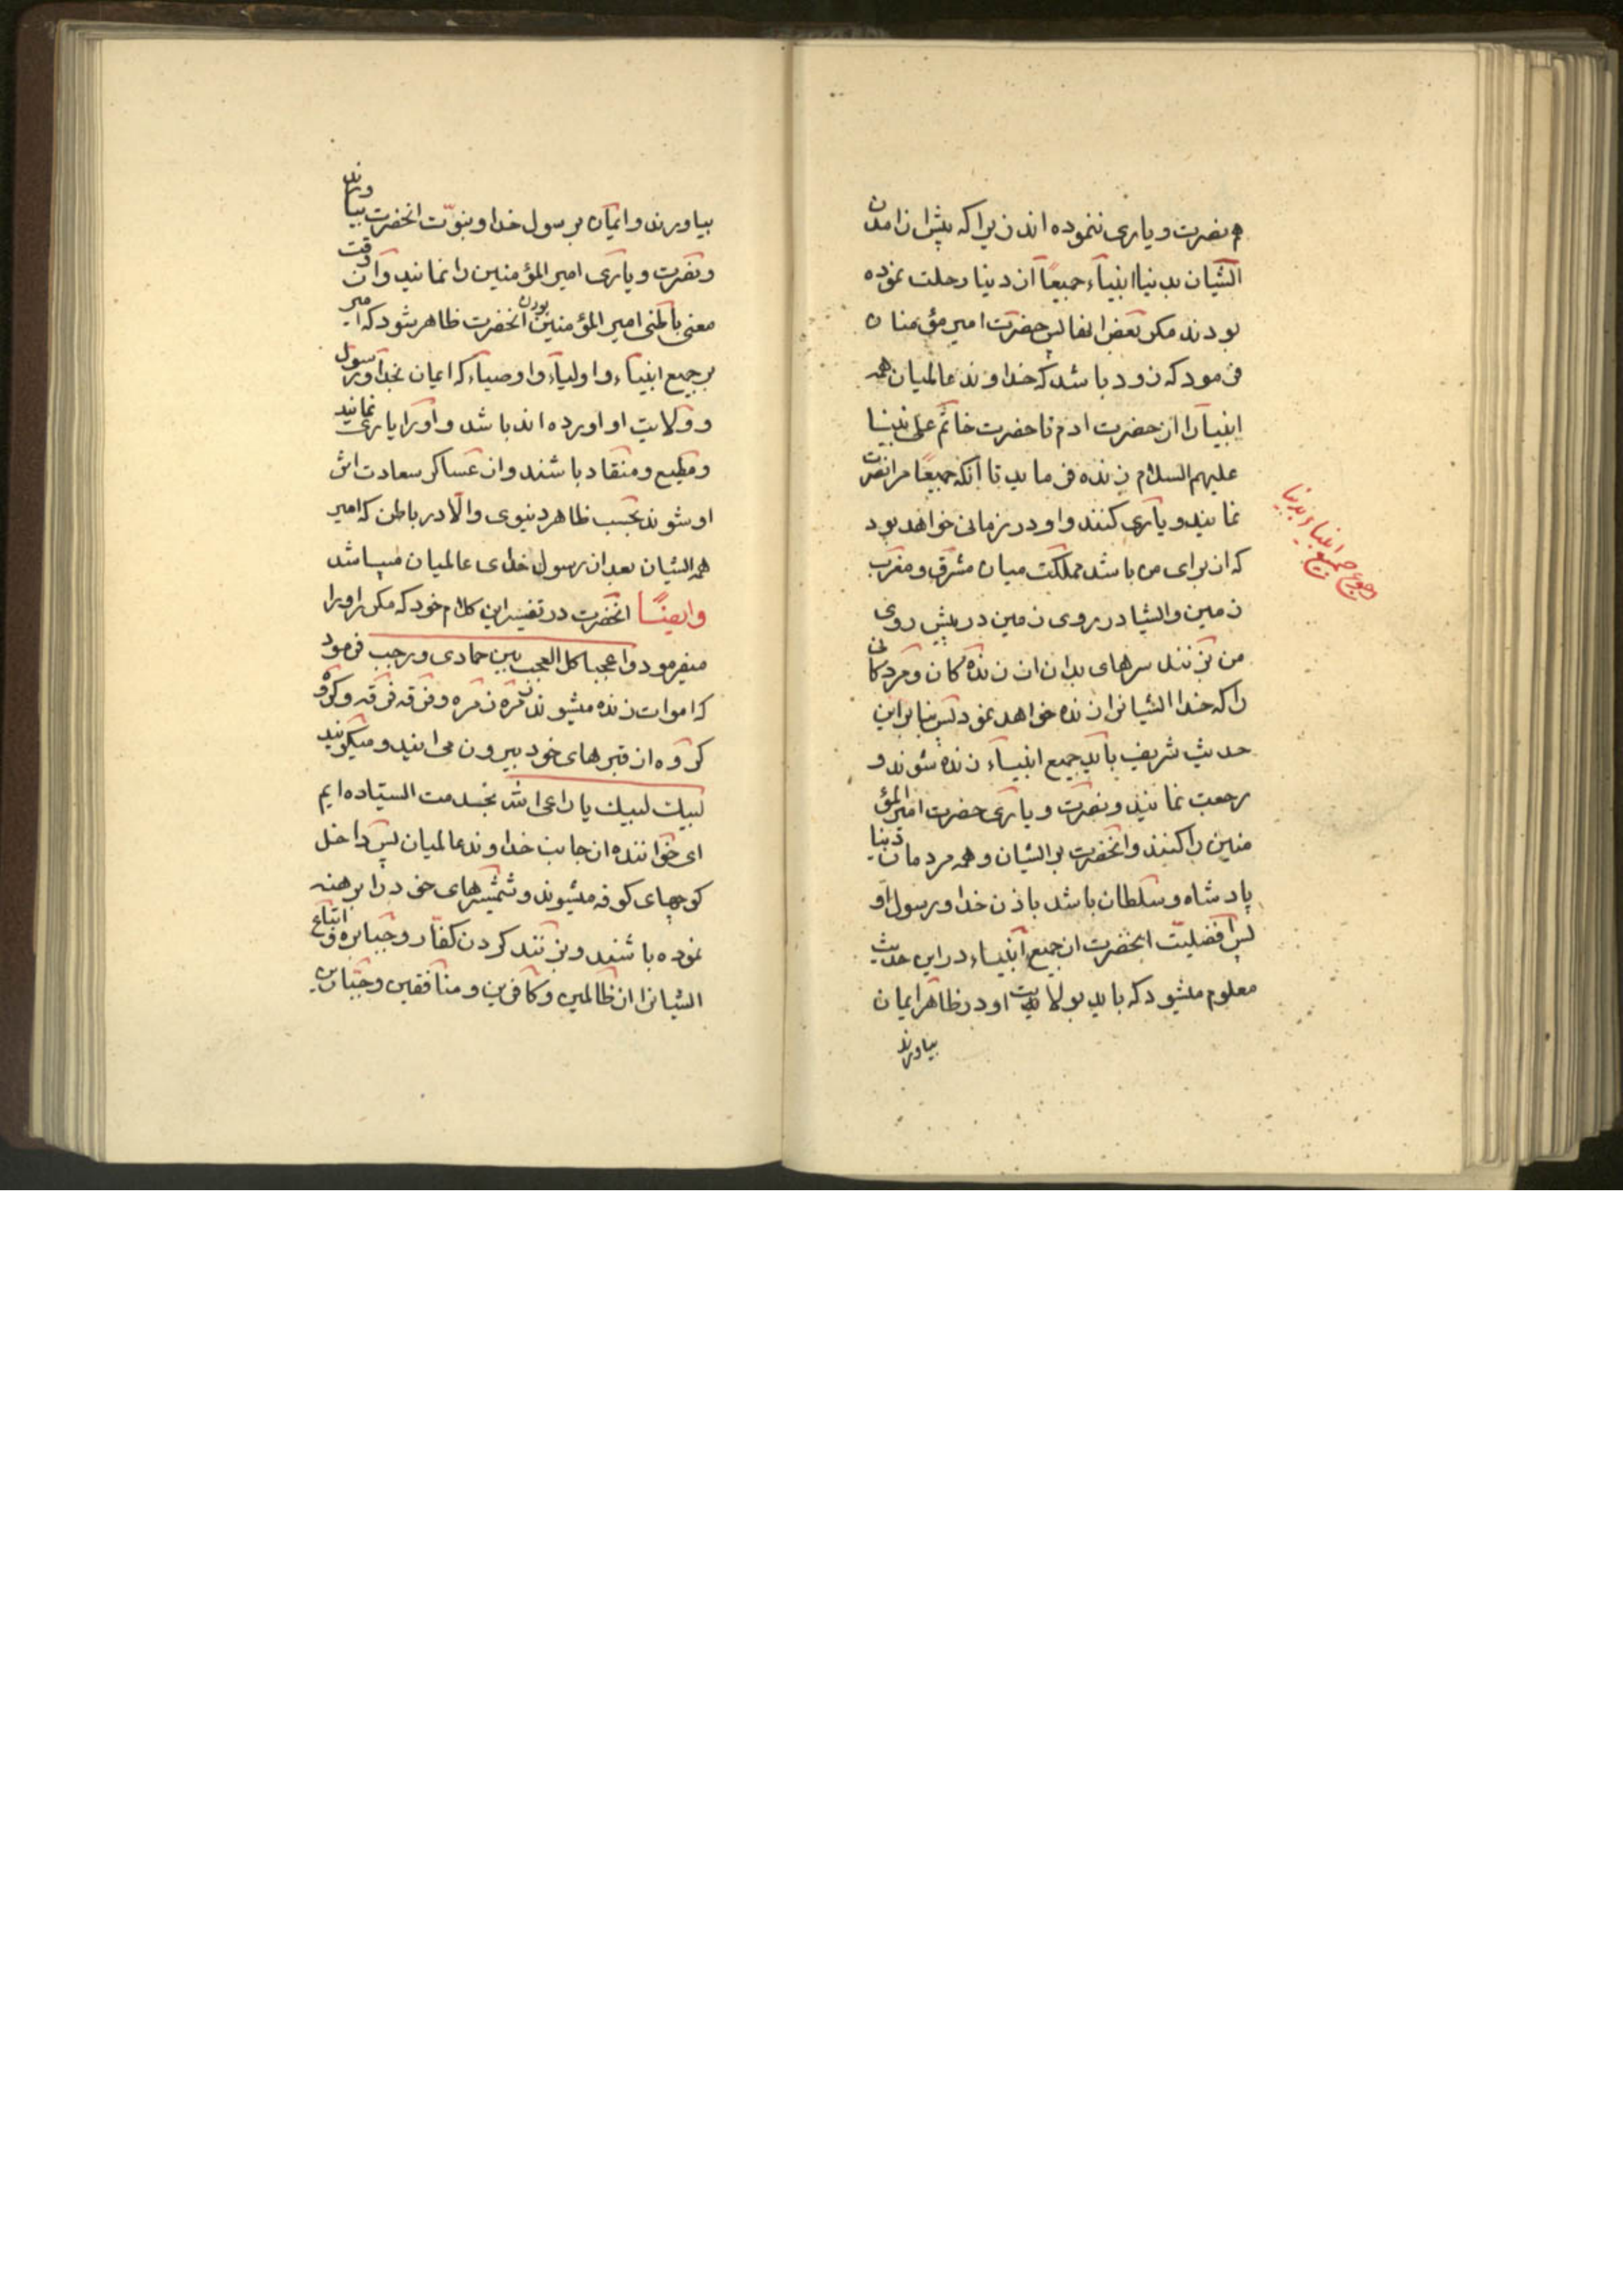 هم نصرت و یاری ننموده اند زیرا که پیش از امدن
ایشان بدنیا انبیاء جمیعاً از دنیا رحلت نموده
بودند مکر بعض انها پس حضرت امیر مؤمنان
فرمود که زود باشد که خداوند عالمیان همه
انبیا را از حضرت ادم تا حضرت خاتم علی نبینا
علیهم السلام زنده فرماید تا آنکه جمیعاً مرا نصرت
نمایند و یاری کنند و او در زمانی خواهد بود
که از برای من باشد مملکت میان مشرق و مغرب
زمین و ایشا در روی زمین در پیش روی
من بزنند سرهای بدان از زنده کان و مرد کانی
را که خدا ایشانرا زنده خواهد نمود پس بنا براین
حدیث شریف باید جمیع انبیاء زنده شوند و
رجعت نمایند و نصرت و یاری حضرت امیر المؤ
منین را کنند و انحضرت بر ایشان و همه مردمان دنیا
پادشاه و سلطان باشد باذن خدا و رسول او
پس افضلیّت انحضرت از جمیع انبیاء در این حدیث
معلوم میشود که باید بولایت او در ظاهر ایمان
بیاورند
رجوع جمیع انبیاء بدنیا
بیاورند و ایمان برسول خدا و بنوّت انحضرت بیاورند
و نصرت و یاری امیر المؤمنین را نمایند و ان وقت
معنی باطنی امیر المؤمنین بودن انحضرت ظاهر شود که امیر
بر جمیع انبیاء و اولیاء و اوصیاء که ایمان بخدا و رسول
و ولایت او اورده اند باشد و اورا یاری نمایند
و مطیع و منقاد باشند و از عساکر سعادت اثر
او شوند بحسب ظاهر دنیوی و الّا در باطن که امیر
همه ایشان بعد از رسول خدای عالمیان میباشد
وایضاً انحضرت در تفسیر این کلام خود که مکرر اورا
میفرمود واعجبا کل العجب بین جمادی و رجب فرمود
که اموات زنده میشوند زمره زمره و فرقه فرقه و کروه
کروه از قبرهای خود بیرون می ایند و میکویند
لبیك لبیك یا داعی الله بخدمت ایستاده ایم
ای خواننده از جانب خداوند عالمیان پس داخل
کوچهای کوفه میشوند و شمشیرهای خود را برهنه
نموده باشند و بزنند کردن کفار و جبابره و اتباع
ایشانرا از ظالمین و کافرین و منافقین و جبّارین